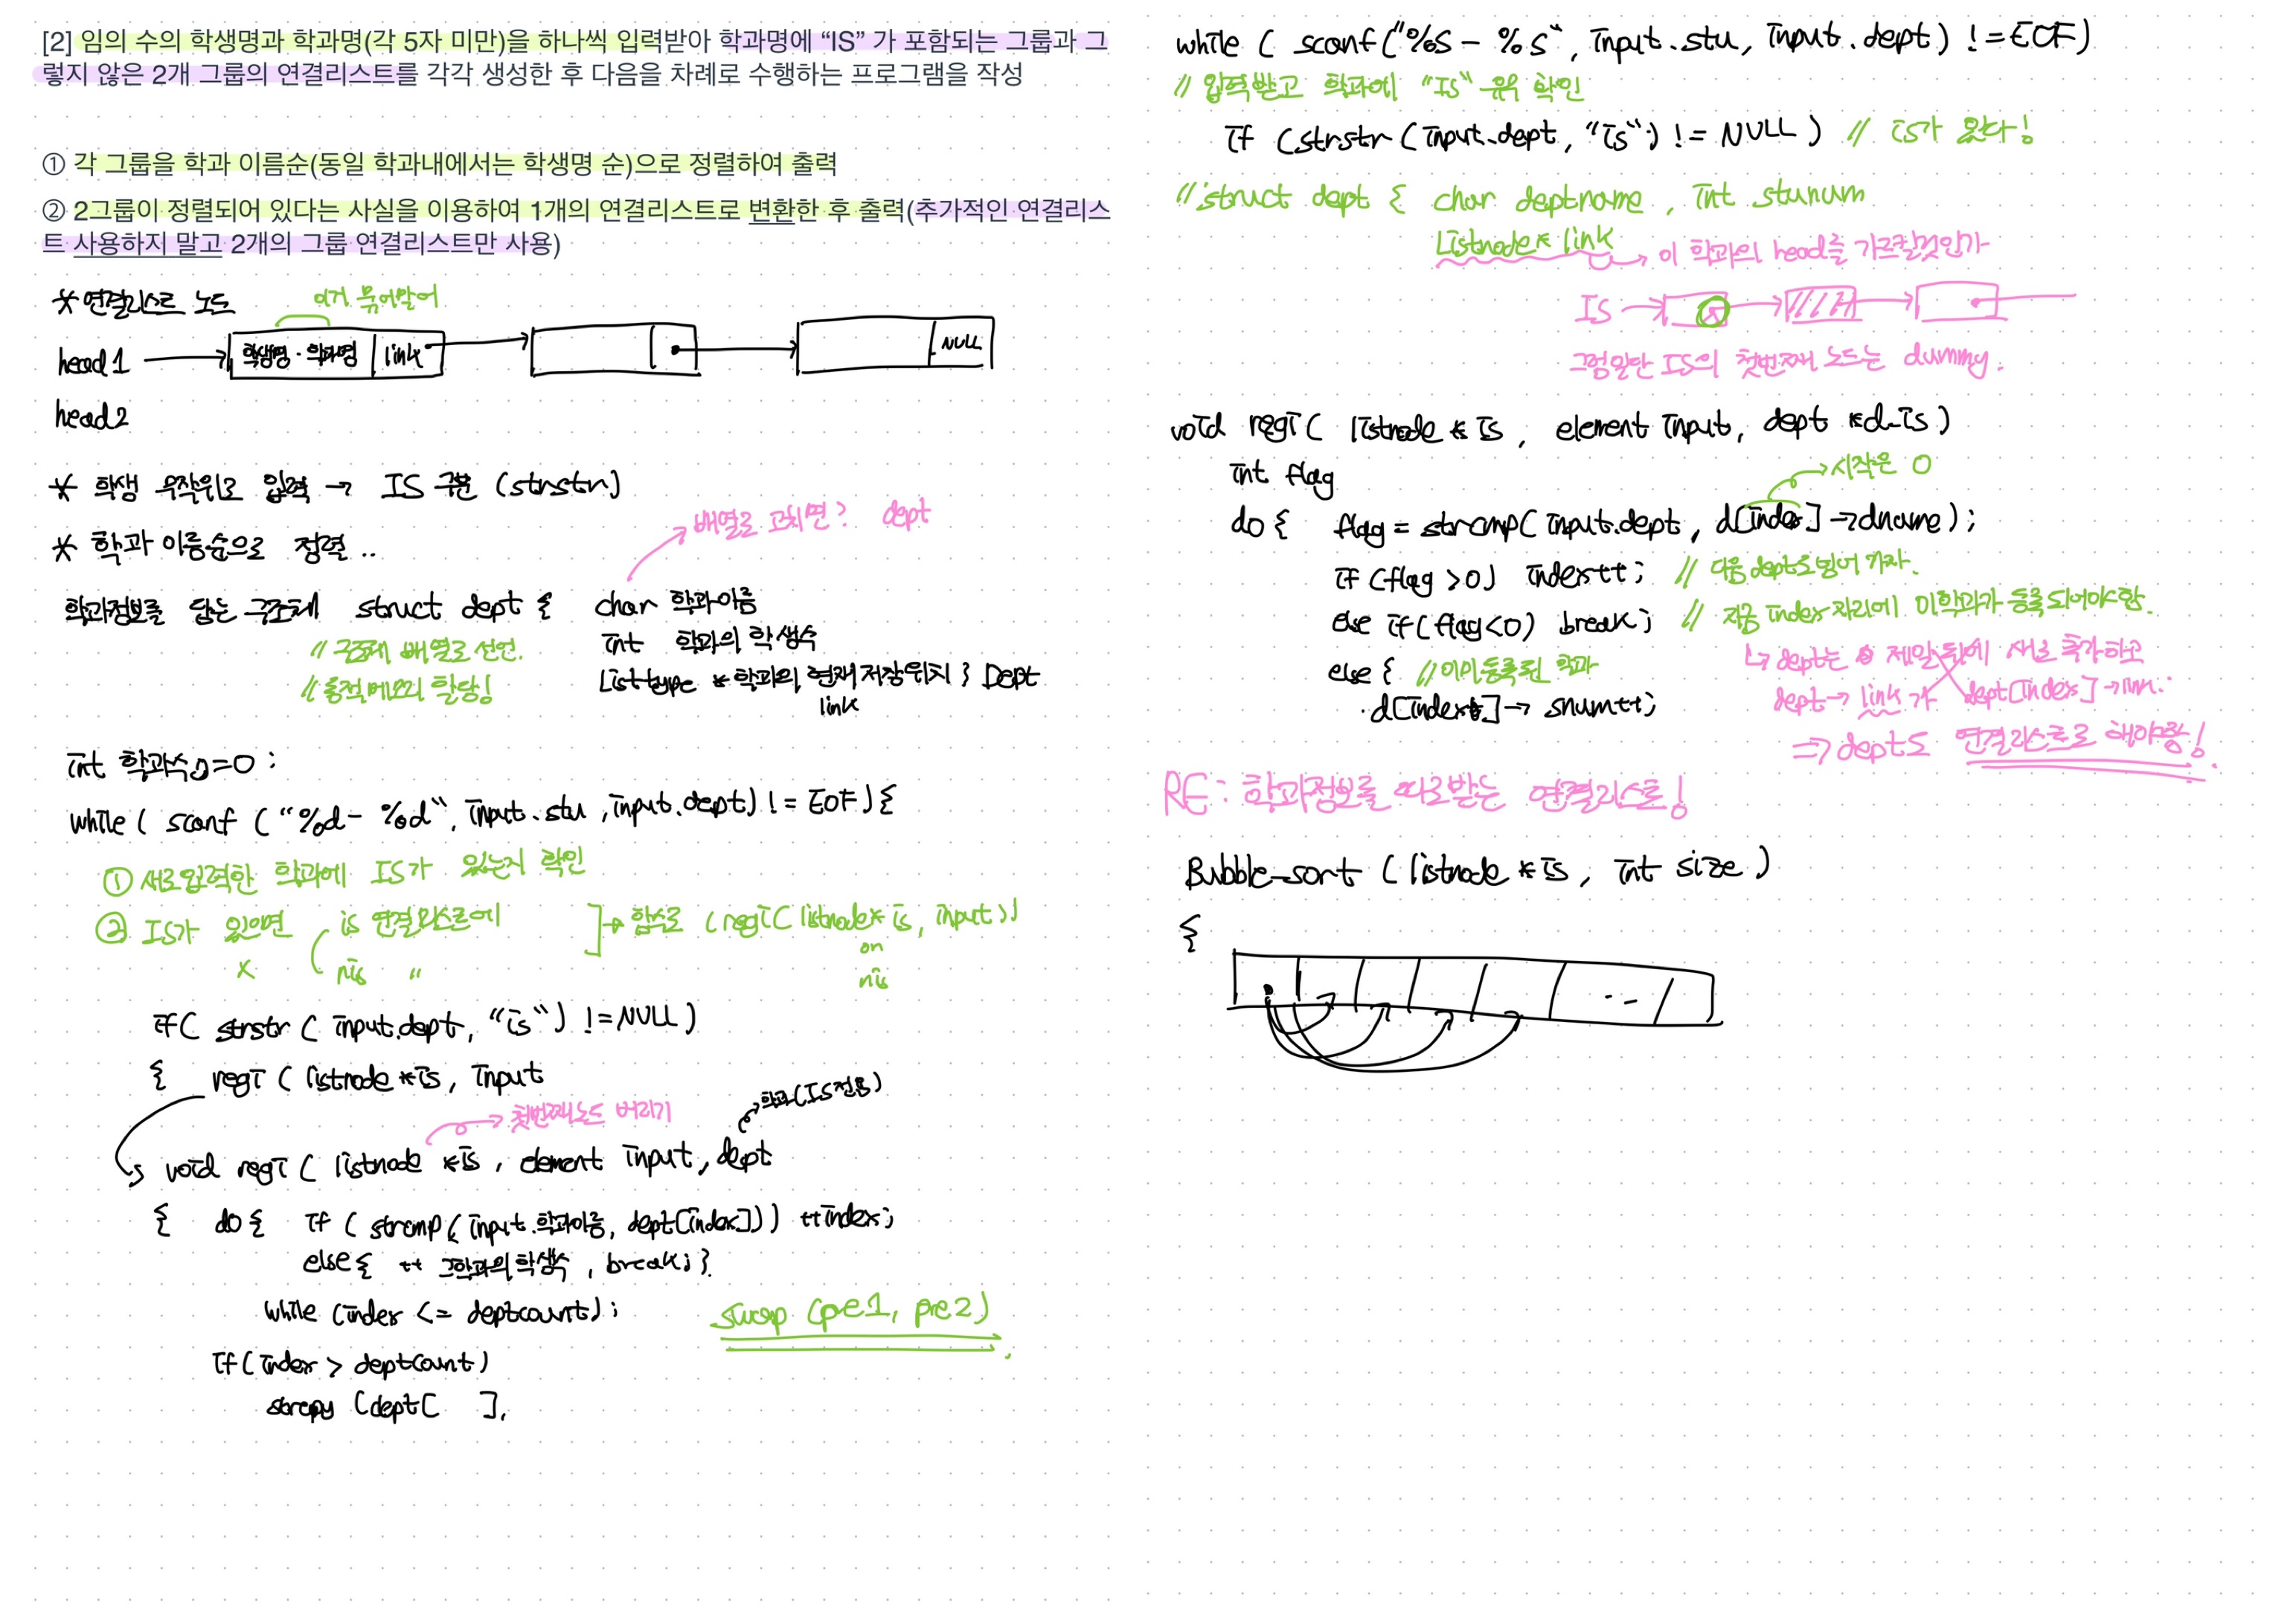 [2] 임의 수의 학생명과 학과명(각 5자 미만)을 하나씩 입력받아 학과명에 “IS” 가 포함되는 그룹과 그
렇지 않은 2개 그룹의 연결리스트를 각각 생성한 후 다음을 차례로 수행하는 프로그램을 작성
① 각 그룹을 학과 이름순(동일 학과내에서는 학생명 순)으로 정렬하여 출력
② 2그룹이 정렬되어 있다는 사실을 이용하여 1개의 연결리스트로 변환한 후 출력(추가적인 연결리스
트 사용하지 말고 2개의 그룹 연결리스트만 사용)
* 연결리스트 노드
이거 묶어말어
head1 학생명 · 학과명 link NULL
head2
* 학생 무작위로 입력 → IS 구분 (strstr)
배열로 고치면? dept
* 학과 이름순으로 정렬 ..
학과정보를 담는 구조체 struct dept { char 학과이름
// 구조체 배열로 선언. int 학과의 학생수
// 동적메모리 할당! Listtype * 학과의 현재 저장위치 } Dept
link
int 학과수=0;
while ( scanf ( “%d - %d“, input.stu , input.dept) != EOF) {
① 새로입력한 학과에 IS가 있는지 확인
② IS가 있으면 is 연결리스트에 → 함수로 (regi( listnode* is, input))
x nis “ on
nis
if( strstr ( input.dept, “is“) != NULL)
{ regi ( listnode *is, input
첫번째노드 버리기 학과(IS전용)
void regi ( listnode *is , element input, dept
{ do { if ( strcmp( input.학과이름, dept[index])) ++index;
else { ++ 그학과의학생수 , break; }
while (index <= deptcount);
swap (pre1, pre2)
if(index > deptcount)
strcpy (dept[ ],
while ( scanf(“%s - %s“, input.stu, input.dept) != EOF)
// 입력받고 학과에 “IS“ 유무 확인
if (strstr (input.dept, “is“) != NULL ) // is가 있다!
// struct dept { char deptname , int stunum
Listnode* link → 이 학과의 head를 가르킬것인가
IS →
그럼일단 IS의 첫번째 노드는 dummy.
void regi ( listnode * is , element input, dept *d_is )
int flag → 시작은 0
do { flag = strcmp( input.dept , d[index] → dname );
if (flag >0) index++; // 다음 dept로 넘어 가자.
else if(flag<0) break; // 지금 index 자리에 이학과가 등록되어야함.
else { // 이미등록된 학과 ↳ dept는 제일뒤에 새로 추가하고
d[index] → snum++; dept → link 가 dept[index] → link.
⇒ dept도 연결리스트로 해야함!
RE: 학과정보를 따로받는 연결리스트!
Bubble_sort ( listnode *is , int size )
{